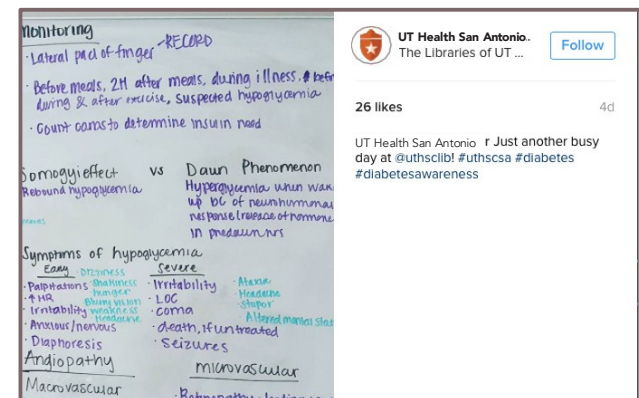 Monitoring
· Lateral pad of finger → RECORD
· Before meals, 2H after meals, during illness, befr
during & after exercise, suspected hypoglycemia
· Count carbs to determine insulin need
Somogyi effect vs Dawn Phenomenon
Rebound hypoglycemia
Hyperglycemia when wak
up bc of neurohummal
response (release of hormone
in predawn hrs
Symptms of hypoglycemia
Early
· Dizziness
· Palpitations
· Shakiness
· ↑ HR
hunger
· Irritability
Blurry vision
weakness
· Anxious/nervous
Headache
· Diaphoresis
Severe
· Irritability
· LOC
· coma
· death, if untreated
· Seizures
· Ataxia
· Headache
· Stupor
· Altered mental stat
Angiopathy
Macrovascular
microvascular
UT Health San Antonio..
The Libraries of UT ...
Follow
26 likes
4d
UT Health San Antonio r Just another busy
day at @uthsclib! #uthscsa #diabetes
#diabetesawareness